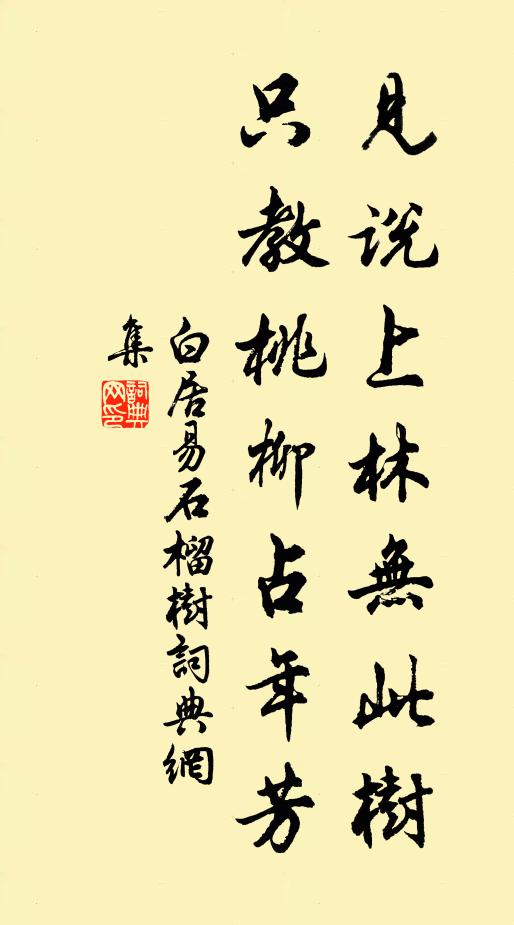 見説上林無此樹
只教桃柳占年芳
白居易石榴樹詞典網
集
詞典網印